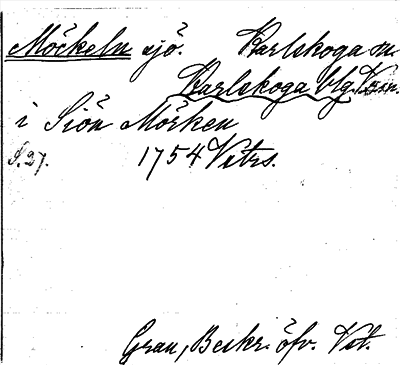 Möckeln sjö. Karlskoga sn
Karlskoga blg. Vrm.
i Siön Mörken
S. 27. 1754 Vetrs.
Grau, Beskr. öfv. Vst.